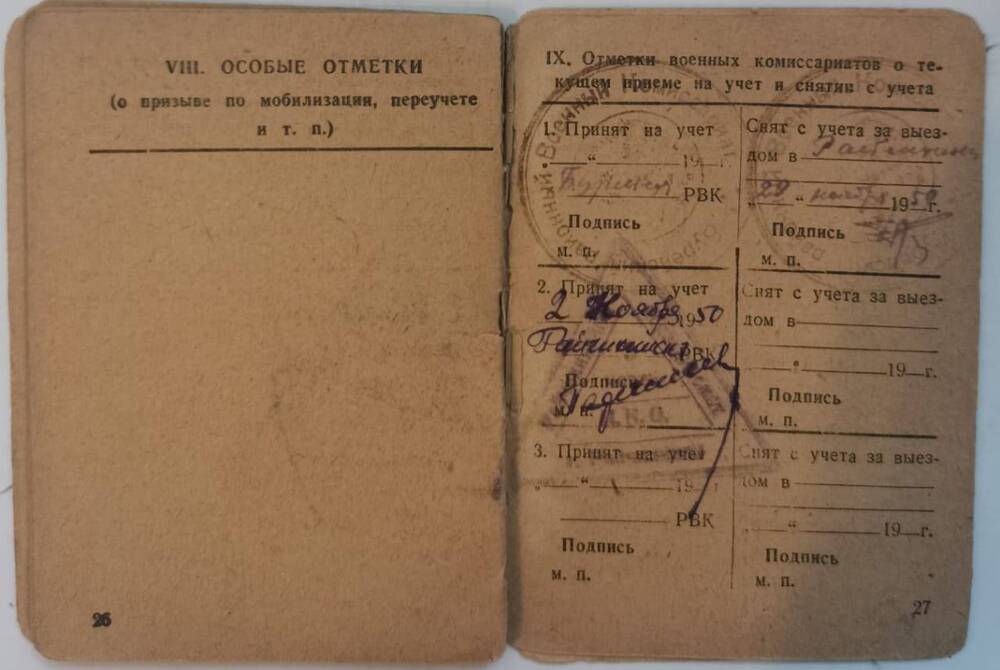 VIII. ОСОБЫЕ ОТМЕТКИ
(о призыве по мобилизации, переучете
и т. п.)
26
IX. Отметки военных комиссариатов о те-
кущем приеме на учет и снятии с учета
1. Принят на учет
„ “ 19 г.
РВК
Подпись
м. п.
Снят с учета за выез-
дом в
„29“ ноября 1950 г.
Подпись
м. п.
2. Принят на учет
2 Ноября 1950
РВК
Подпись
м. п.
Снят с учета за выез-
дом в
„ “ 19 г.
Подпись
м. п.
3. Принят на учет
„ “ 19 г.
РВК
Подпись
м. п.
Снят с учета за выез-
дом в
„ “ 19 г.
Подпись
м. п.
27
районный Военный Комиссариат